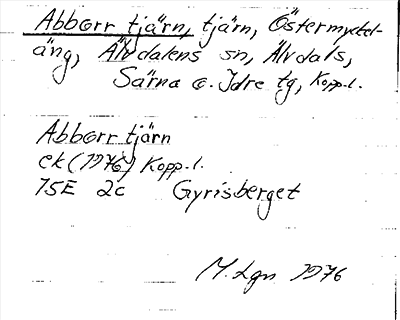 Abborr tjärn, tjärn, Östermyckel-
äng, Älvdalens sn, Älvdals,
Särna o. Idre tg, Kopp. l.
Abborr tjärn
ek (1976) Kopp. l.
15E 2c Gyrisberget
M. Lgn 1976